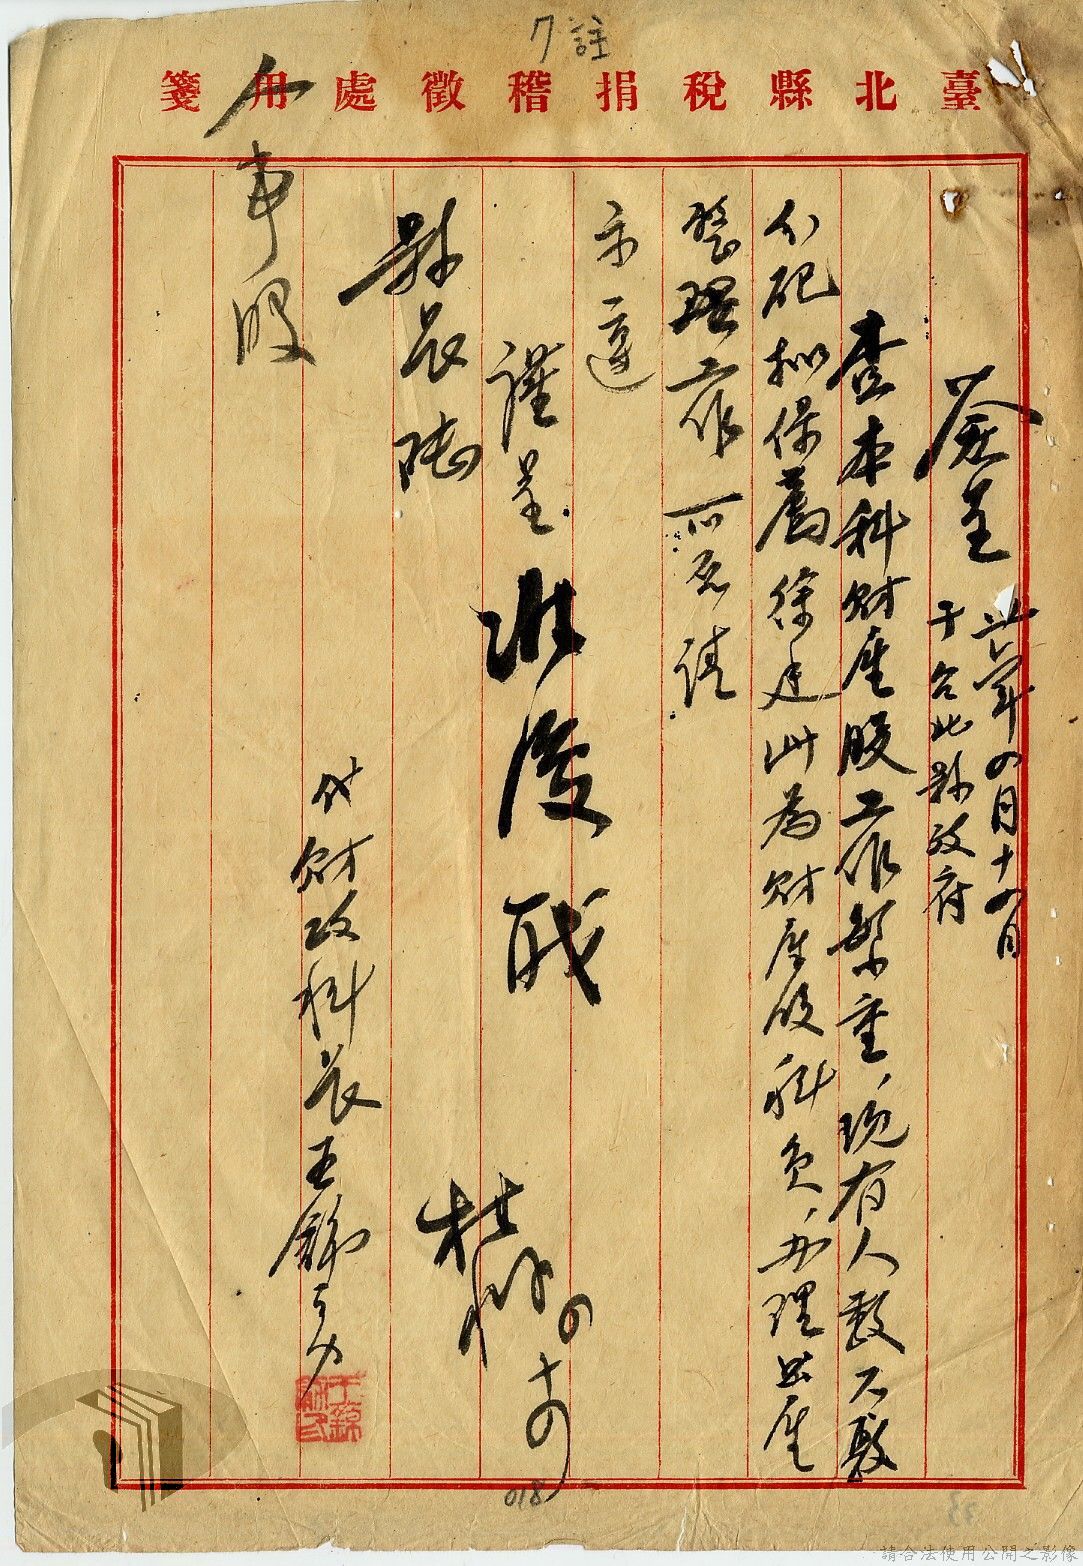 7 註
臺北縣稅捐稽徵處用箋
簽呈
卅六年四月十四日
于台北縣政府
查本科財產股工作繁重、現有人數不敷
分配擬保薦徐廷
為財產股科員、办理公產
整理工作 可否請
示遵
謹呈
縣長陸
准
代財政科長王錦
人事股
杜
四
十四
018
請合法使用公開之影像